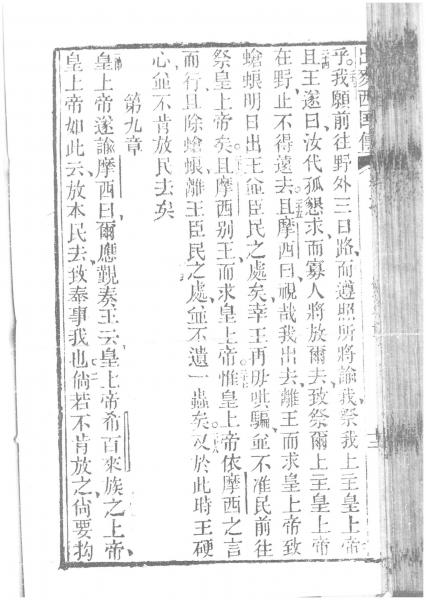 乎。我願前往野外三日路、而遵照所將諭我、祭我上主皇上帝
且王遂曰、汝代孤懇求、而寡人將放爾去、致祭爾上主皇上帝
在野、止不得遠去。且摩西曰、視哉我出去、離王而求皇上帝、致
螥蜋明日出王並臣民之處矣、幸王再毋哄騙、並不准民前往
祭皇上帝矣。且摩西別王而求皇上帝、惟皇上帝依摩西之言
而行、且除螥蜋、離王臣民之處、並不遺一蟲矣。又於此時王硬
心、並不肯放民去矣
第九章
皇上帝遂諭摩西曰、爾應覲奏王云、皇上帝希百來族之上帝
皇上帝如此云、放本民去、致奉事我也。倘若不肯放之、尚要拘